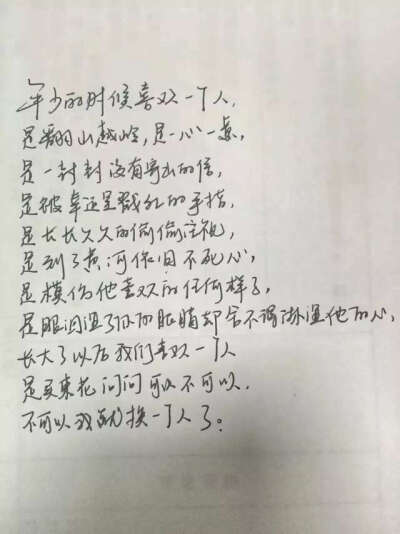 年少的时候喜欢一个人,
是翻山越岭,是一心一意,
是一封封没有寄出的信,
是被幸运星戳红的手指,
是长长久久的偷偷注视,
是到了黄河依旧不死心,
是模仿他喜欢的任何样子,
是眼泪湿了你的眼睛却舍不得淋湿他的心,
长大了以后我们喜欢一个人
是买束花问问可以不可以,
不可以我就换一个人了。